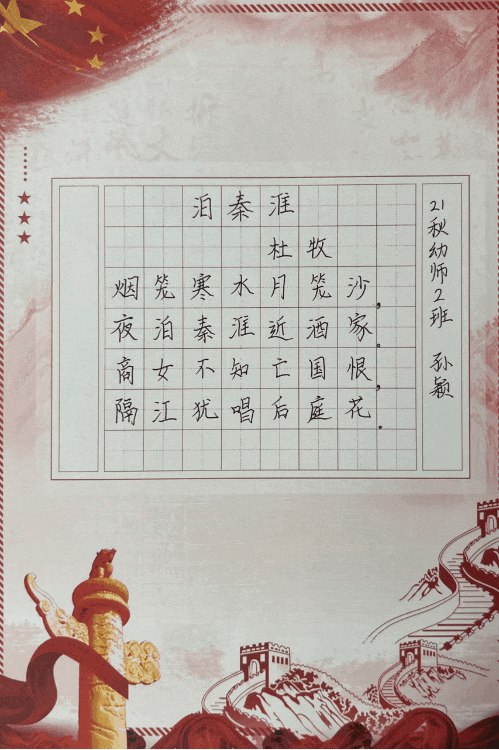 泊秦淮
杜牧
烟笼寒水月笼沙,
夜泊秦淮近酒家。
商女不知亡国恨,
隔江犹唱后庭花。
21秋幼师2班 孙颖